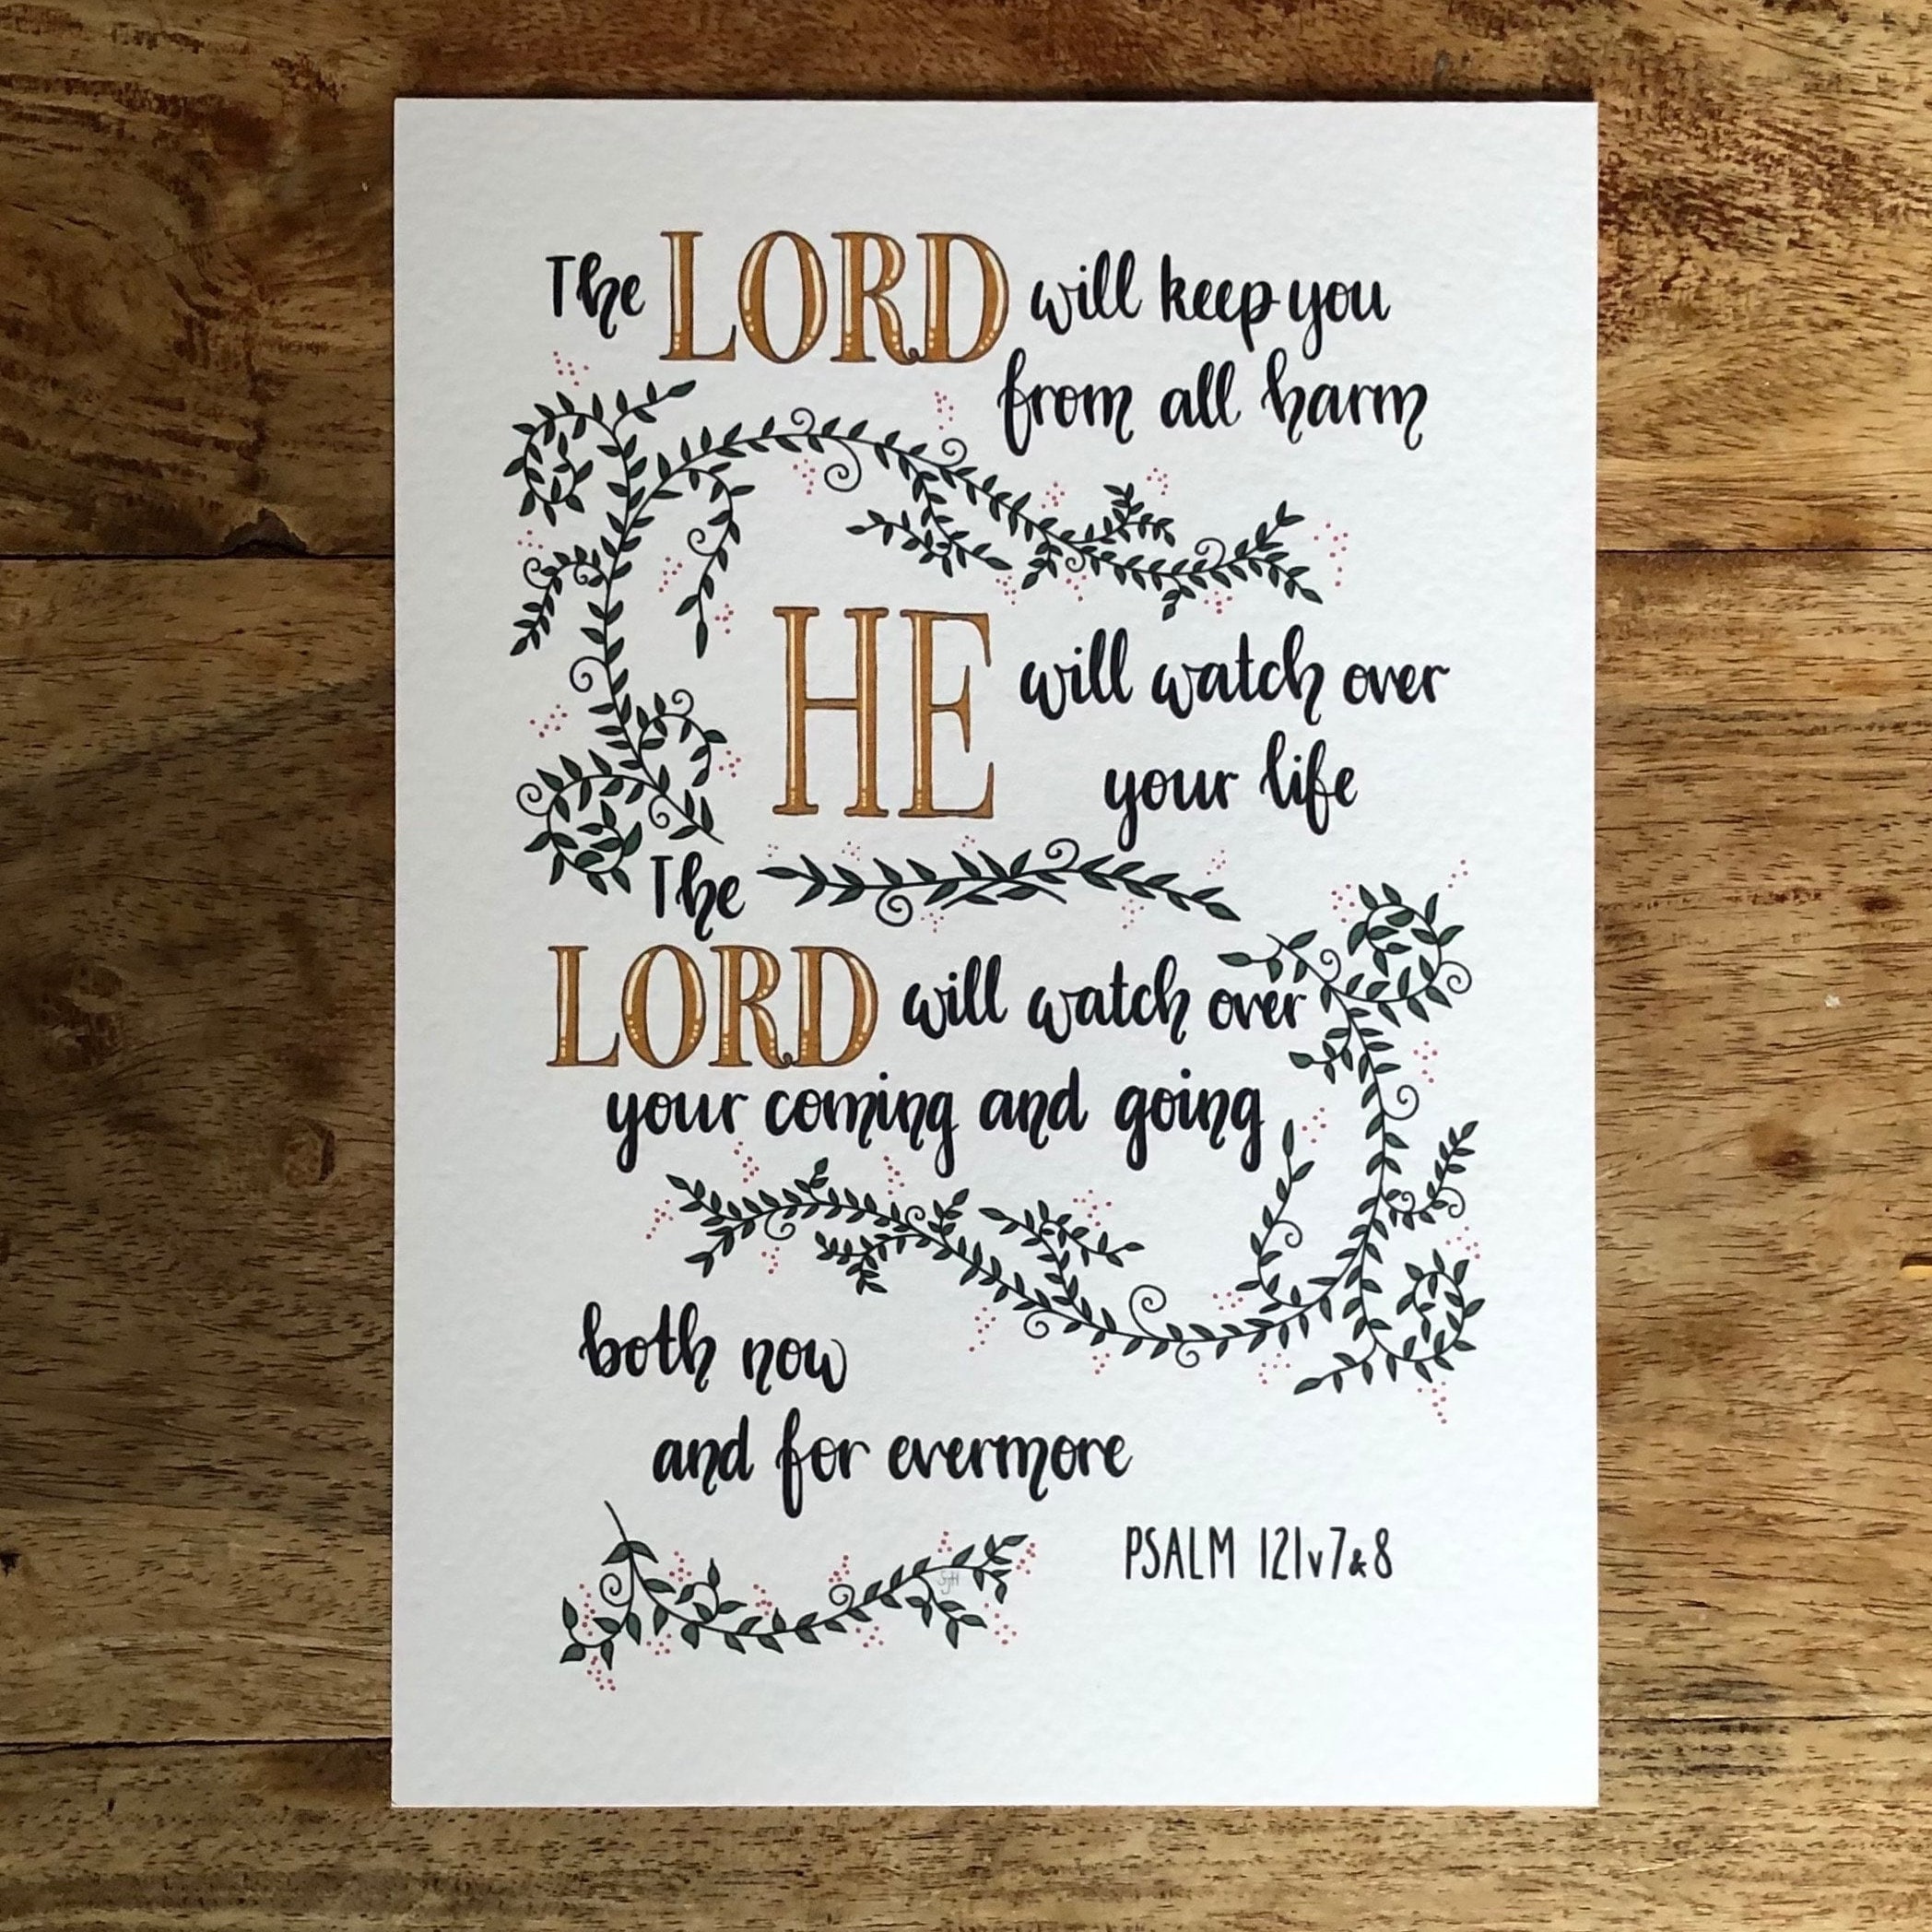 The LORD will keep you
from all harm
HE will watch over
your life
The
LORD will watch over
your coming and going
both now
and for evermore
PSALM 121v7&8
SJH